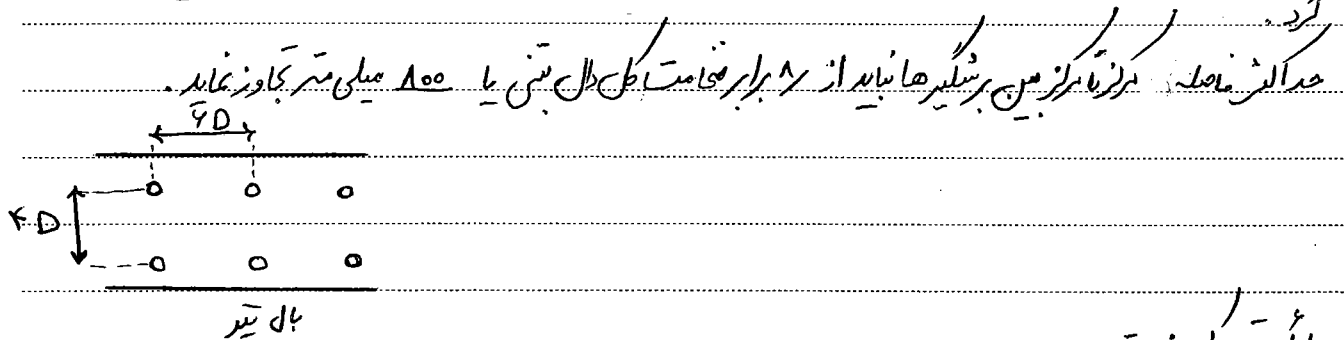 کرد.
حداکثر فاصله مرکز تا مرکز بین برشگیرها نباید از ۸ برابر ضخامت کل دال بتنی یا ۸۰۰ میلی متر تجاوز نماید.
۶D
۴D
بال تیر
۶ -